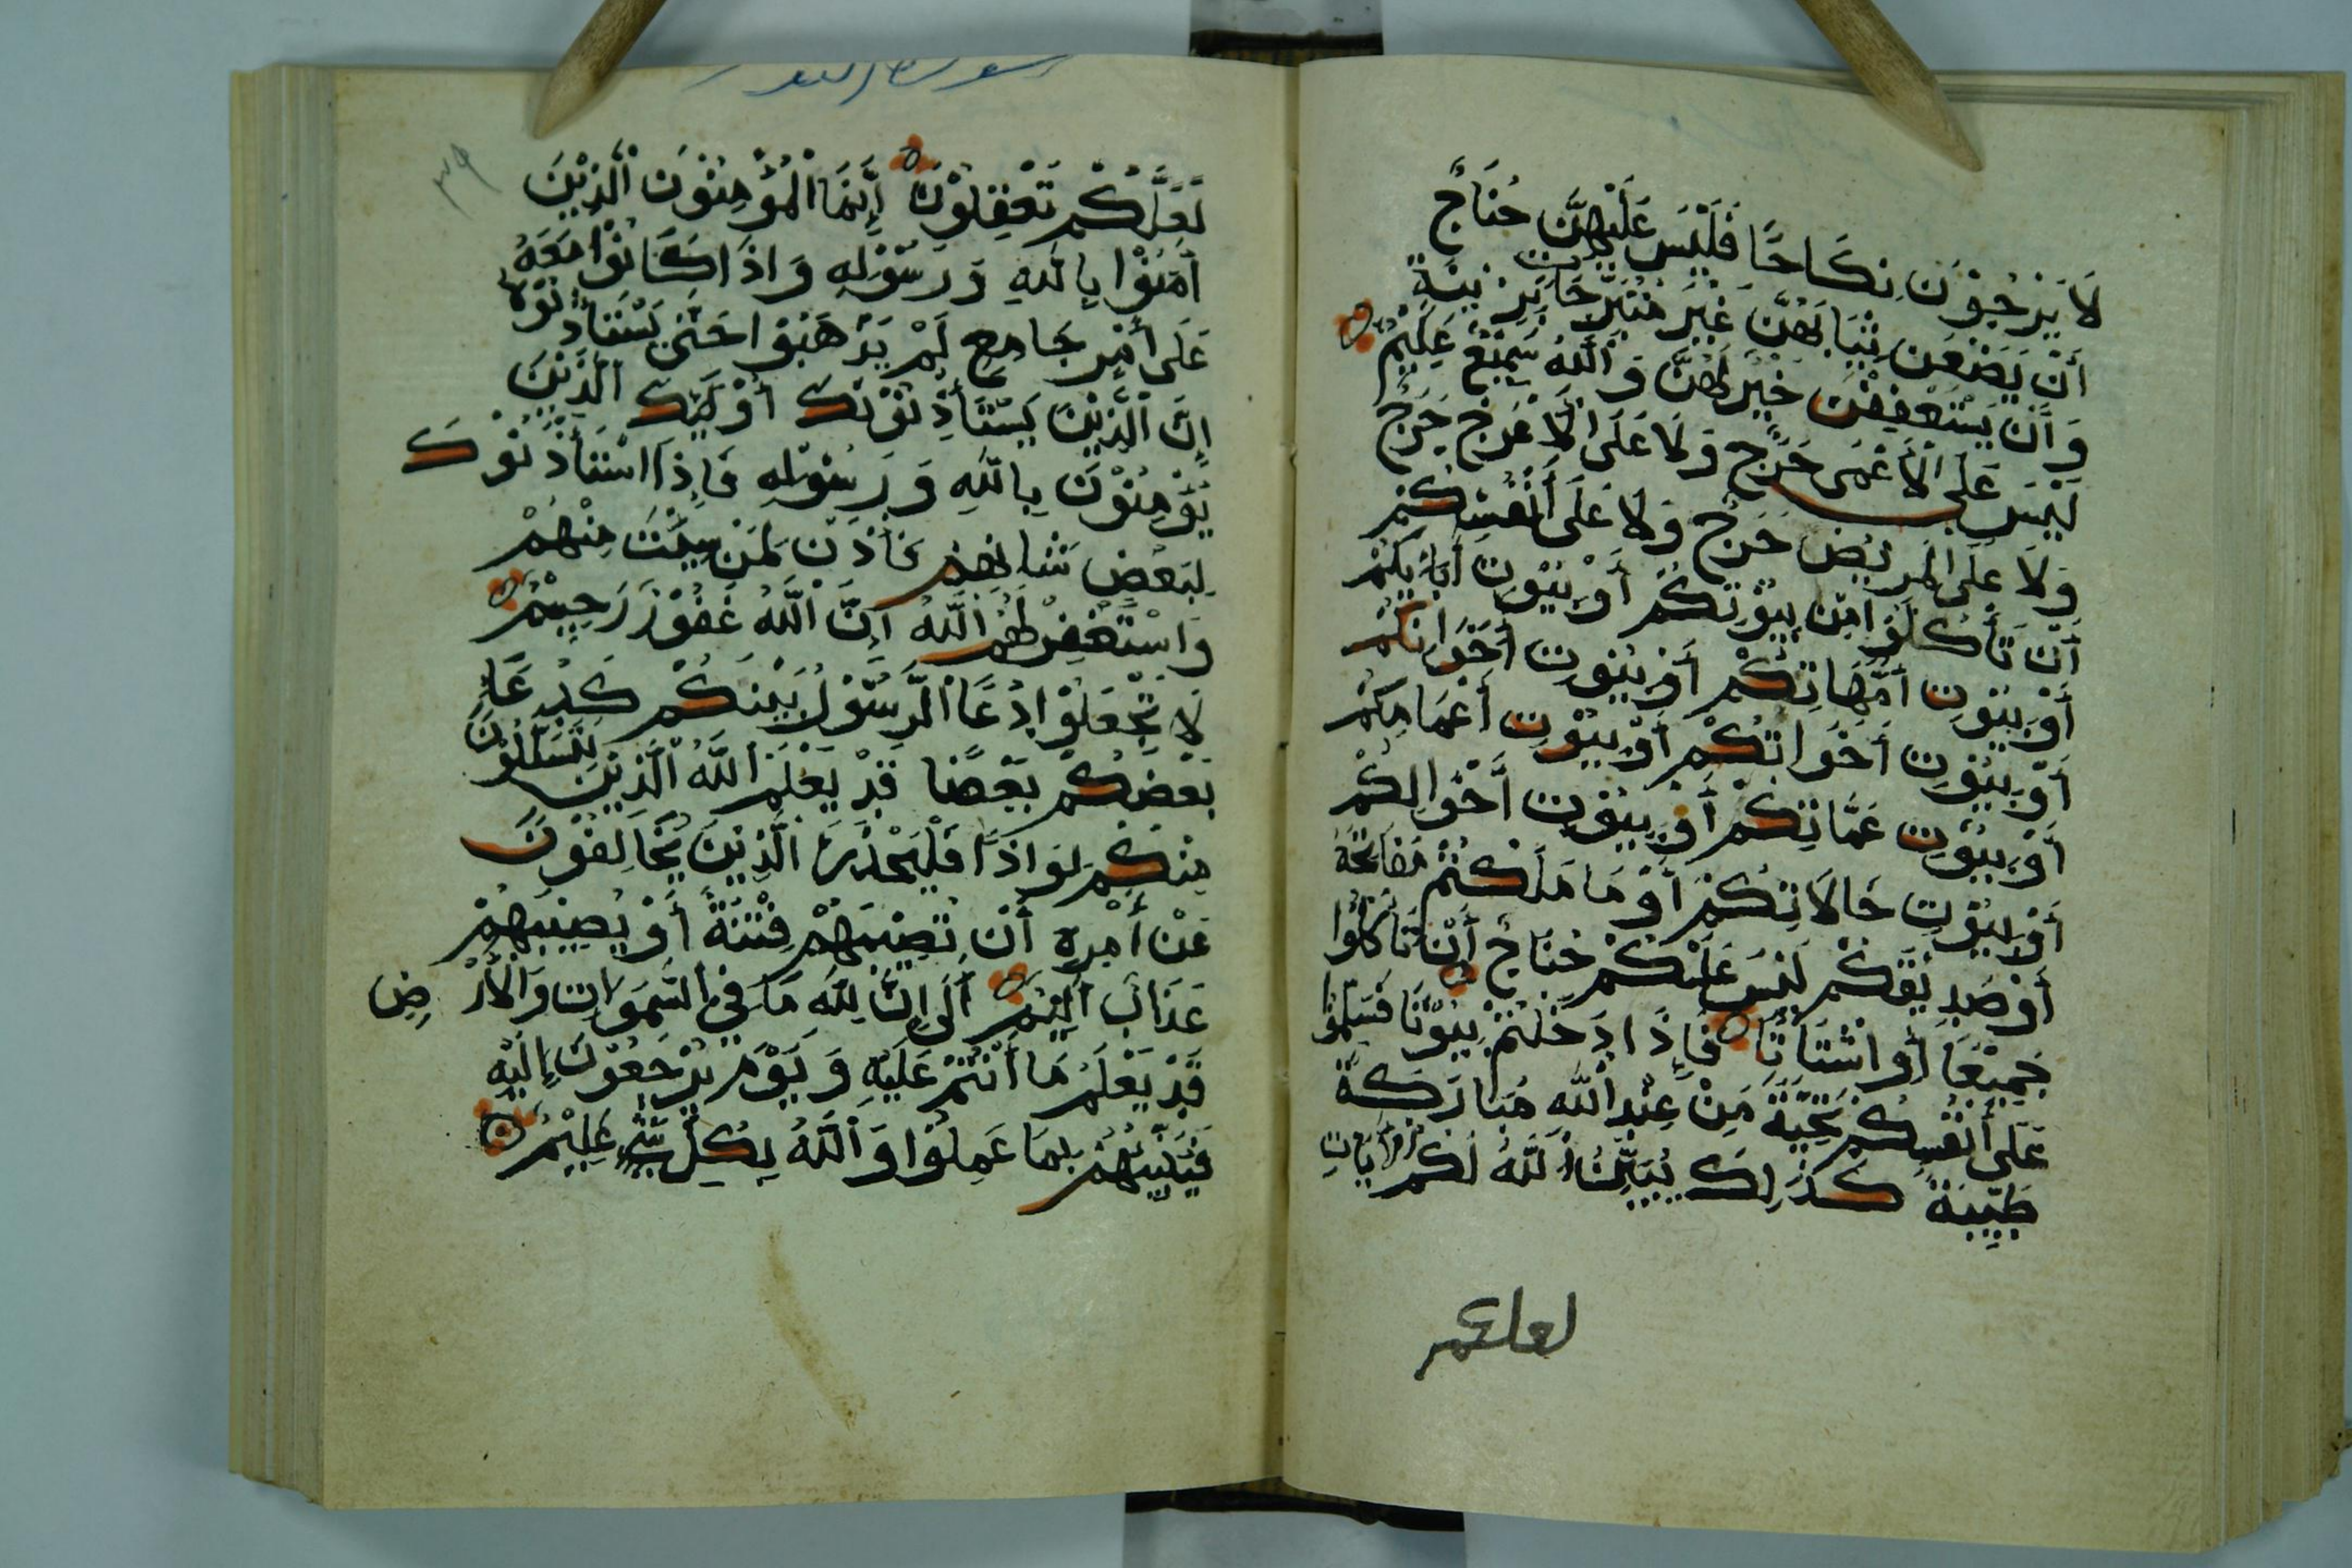 لَا يَرْجُوْنَ نِكَاحًا فَلَيْسَ عَلَيْهِنَّ جُنَاحٌ
أَنْ يَضَعْنَ ثِيَابَهُنَّ غَيْرَ مُتَبَرِّجَاتٍ بِزِيْنَةٍ
وَأَنْ يَسْتَعْفِفْنَ خَيْرٌ لَهُنَّ وَاللَّهُ سَمِيْعٌ عَلِيْمٌ
لَيْسَ عَلَى الْأَعْمَى حَرَجٌ وَلَا عَلَى الْأَعْرَجِ حَرَجٌ
وَلَا عَلَى الْمَرِيْضِ حَرَجٌ وَلَا عَلَى أَنْفُسِكُمْ
أَنْ تَأْكُلُوا مِنْ بُيُوْتِكُمْ أَوْ بُيُوْتِ أَبَائِكُمْ
أَوْ بُيُوْتِ أُمَّهَاتِكُمْ أَوْ بُيُوْتِ أَخَوَانِكُمْ
أَوْ بُيُوْتِ أَخَوَاتِكُمْ أَوْ بُيُوْتِ أَعْمَامِكُمْ
أَوْ بُيُوْتِ عَمَّاتِكُمْ أَوْ بُيُوْتِ أَخْوَالِكُمْ
أَوْ بُيُوْتِ خَالَاتِكُمْ أَوْ مَا مَلَكْتُمْ مَفَاتِحَهُ
أَوْ صَدِيْقِكُمْ لَيْسَ عَلَيْكُمْ جُنَاحٌ أَنْ تَأْكُلُوا
جَمِيْعًا أَوْ اشْتَاتًا فَإِذَا دَخَلْتُمْ بُيُوْتًا فَسَلِّمُوا
عَلَى أَنْفُسِكُمْ تَحِيَّةً مِنْ عِنْدِ اللَّهِ مُبَارَكَةً
طَيِّبَةً كَذَلِكَ يُبَيِّنُ اللَّهُ لَكُمُ الْأَيَاتِ
لعلكم
٣٩
لَعَلَّكُمْ تَعْقِلُوْنَ إِنَّمَا الْمُؤْمِنُوْنَ الَّذِيْنَ
أَمَنُوْا بِاللَّهِ وَرَسُوْلِهِ وَإِذَا كَانُوْا مَعَهُ
عَلَى أَمْرٍ جَامِعٍ لَمْ يَذْهَبُوْا حَتَّى يَسْتَأْذِنُوْهُ
إِنَّ الَّذِيْنَ يَسْتَأْذِنُوْنَكَ أُوْلَئِكَ الَّذِيْنَ
يُؤْمِنُوْنَ بِاللَّهِ وَرَسُوْلِهِ فَإِذَا اسْتَأْذَنُوْكَ
لِبَعْضِ شَانِهِمْ فَأْذَنْ لِمَنْ شِئْتَ مِنْهُمْ
وَاسْتَغْفِرْ لَهُمُ اللَّهَ إِنَّ اللَّهَ غَفُوْرٌ رَحِيْمٌ
لَا تَجْعَلُوْا دُعَاءَ الرَّسُوْلِ بَيْنَكُمْ كَدُعَاءِ
بَعْضِكُمْ بَعْضًا قَدْ يَعْلَمُ اللَّهُ الَّذِيْنَ يَتَسَلَّلُوْنَ
مِنْكُمْ لِوَاذًا فَلْيَحْذَرِ الَّذِيْنَ يُخَالِفُوْنَ
عَنْ أَمْرِهِ أَنْ تُصِيْبَهُمْ فِتْنَةٌ أَوْ يُصِيْبَهُمْ
عَذَابٌ أَلِيْمٌ أَلَا إِنَّ لِلَّهِ مَا فِي السَّمَوَاتِ وَالْأَرْضِ
قَدْ يَعْلَمُ مَا أَنْتُمْ عَلَيْهِ وَيَوْمَ يُرْجَعُوْنَ إِلَيْهِ
فَيُنَبِّئُهُمْ بِمَا عَمِلُوْا وَاللَّهُ بِكُلِّ شَيْءٍ عَلِيْمٌ